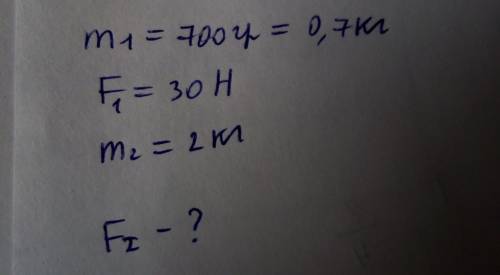 m₁ = 700 гр = 0,7 кг
F₁ = 30 Н
m₂ = 2 кг
F₂ - ?